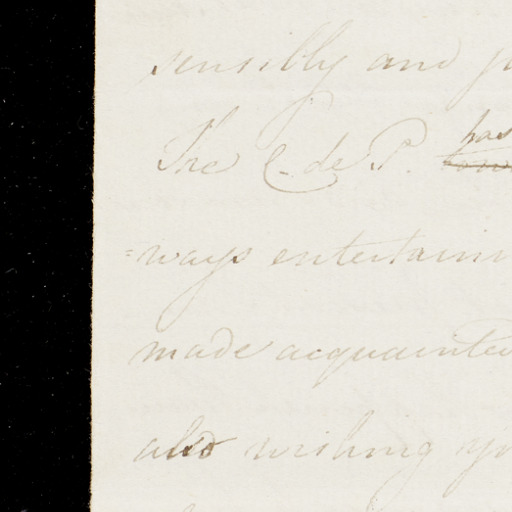 sensibly and
The C. de P. has
=ways entertain
made acquainte
also wishing yo